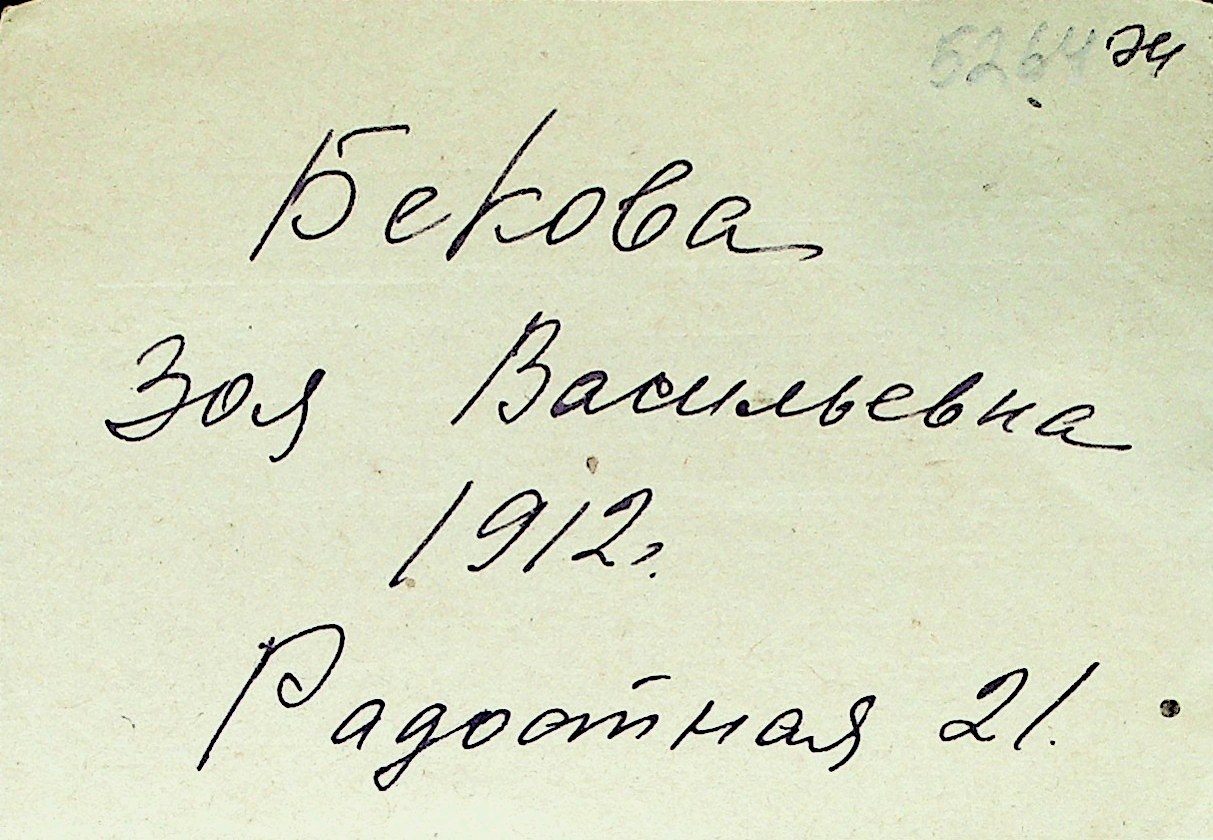 5264 эч
Бекова
Зоя Васильевна
1912г.
Радостная 21.